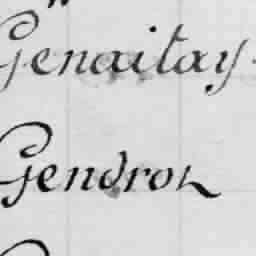 Genaitay.
Gendron